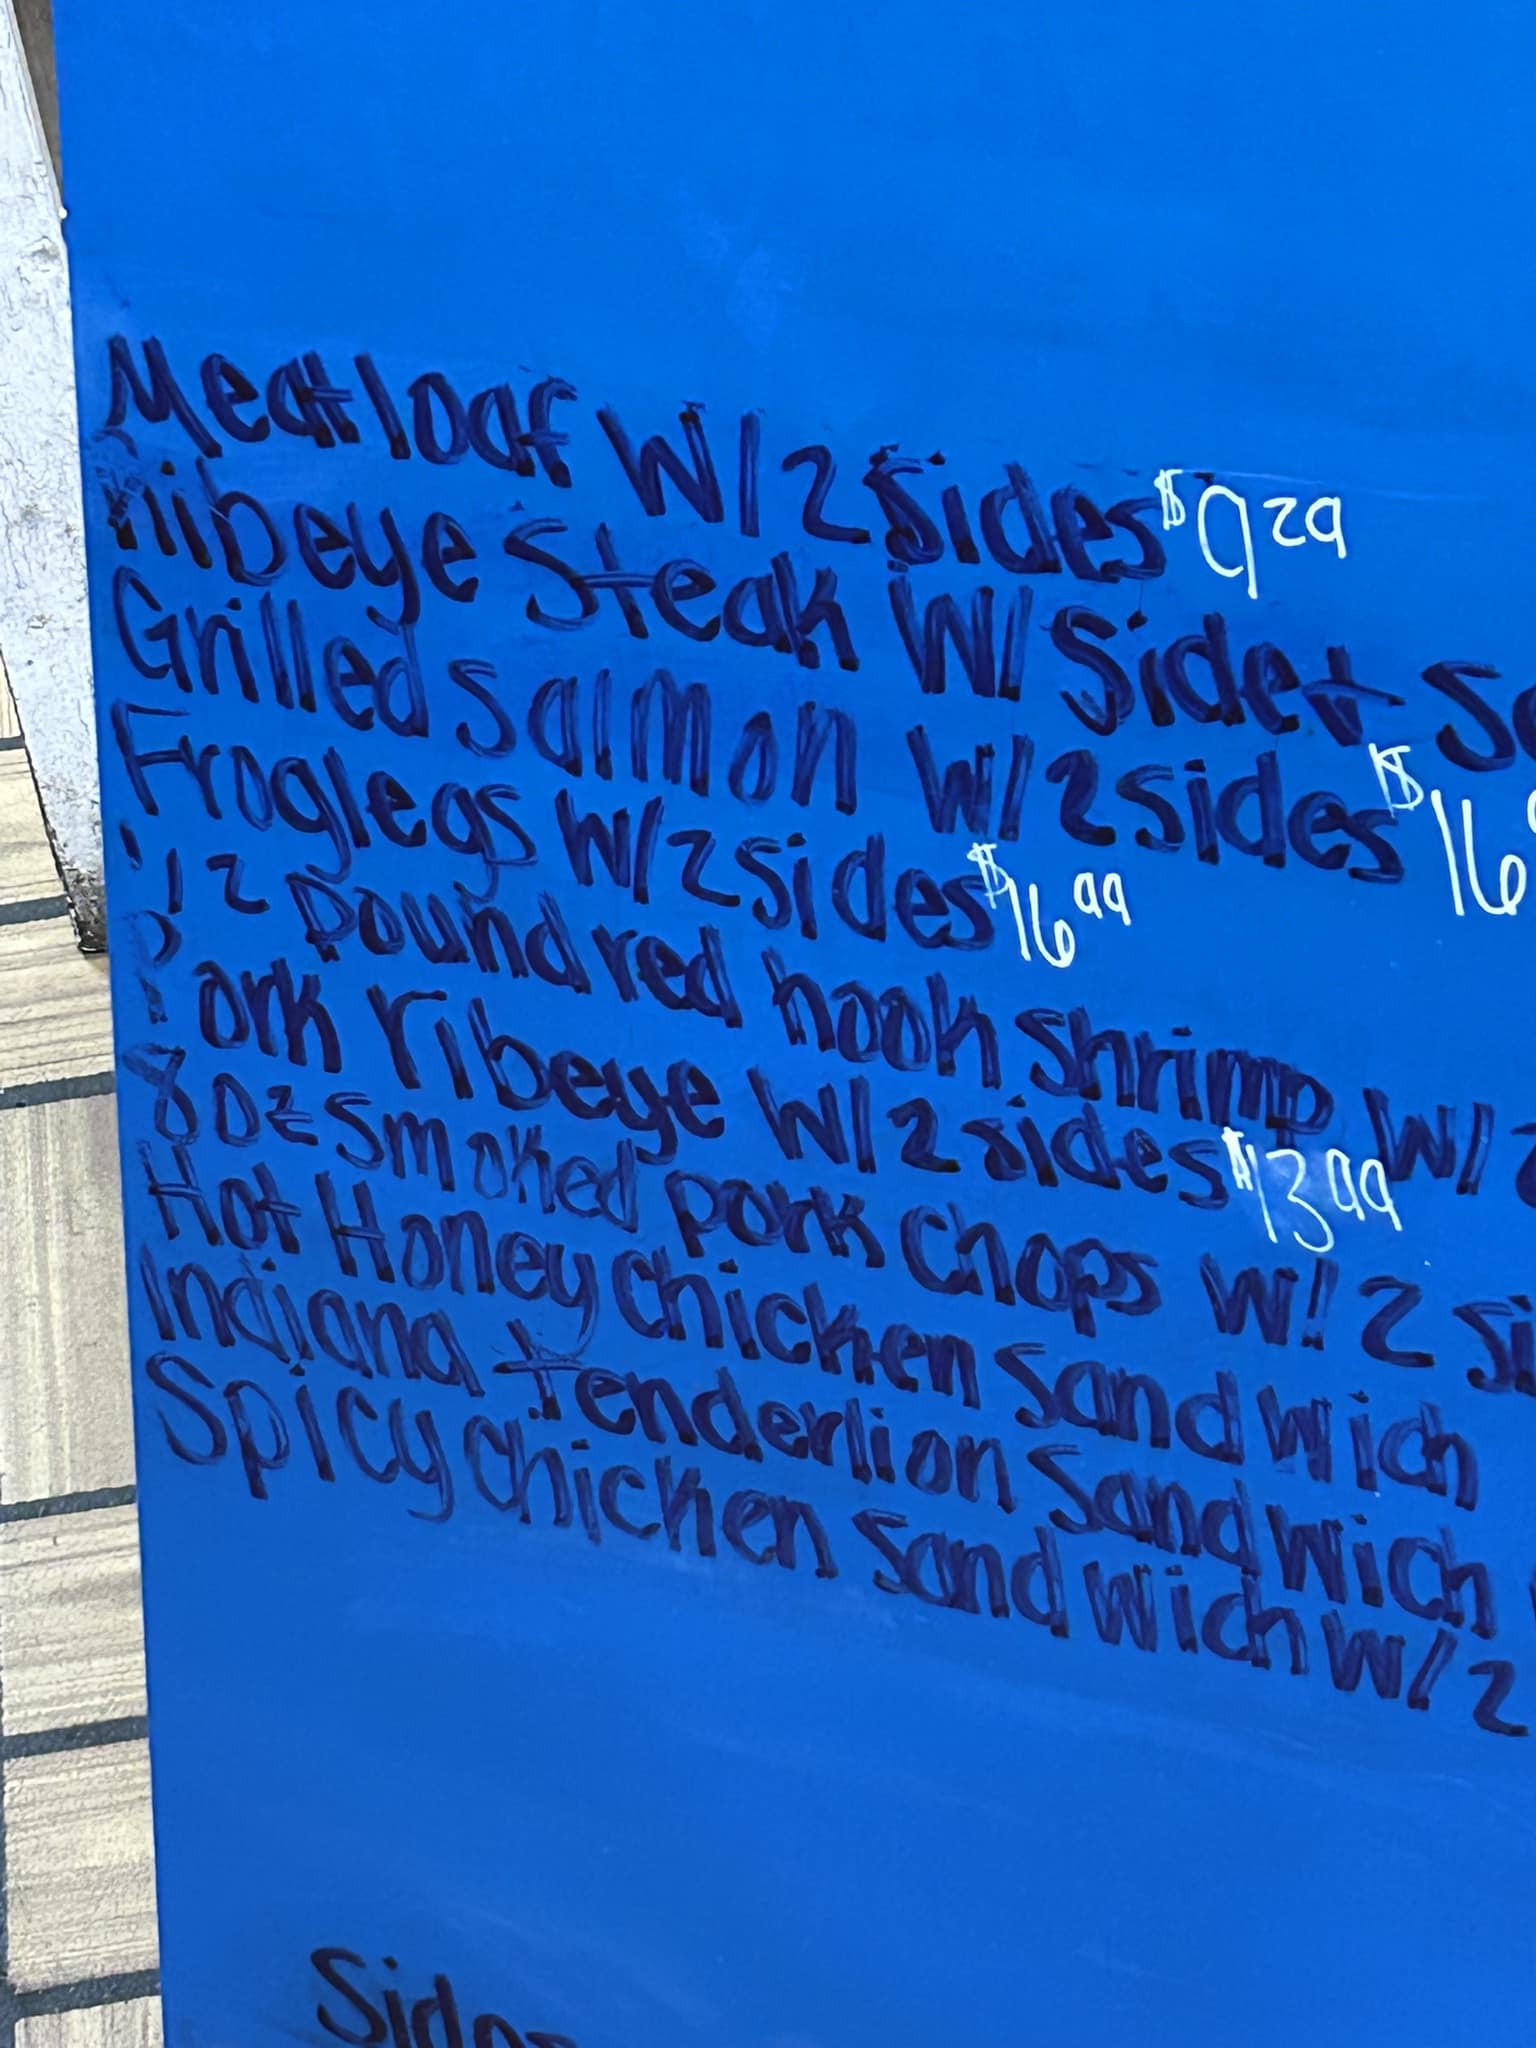 Meatloaf W/2 Sides $9.29
Ribeye Steak W/ Side +
Grilled Salmon W/ 2 sides $16
Froglegs W/2 sides $16.99
1/2 Pound red hook Shrimp W/
Pork ribeye W/ 2 sides $13.99
8 oz Smoked Pork Chops W/ 2
Hot Honey Chicken Sandwich
Indiana tenderlion Sandwich
Spicy Chicken Sandwich W/ 2
Sides